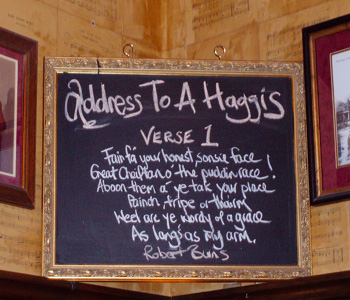 Address To A Haggis
VERSE 1
Fair fa' your honest, sonsie face!
Great Chieftan o' the puddin race!
Aboon them a' ye tak your place
Painch, tripe or thairm
Weel are ye wordy of a grace
As lang's as my arm.
Robert Burns